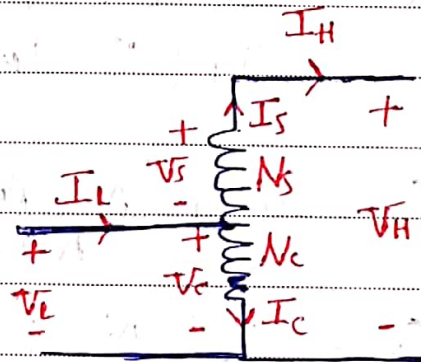 I_H
+ I_S +
V_S N_S
I_L - V_H
+ + N_C
V_L V_C
- - I_C -